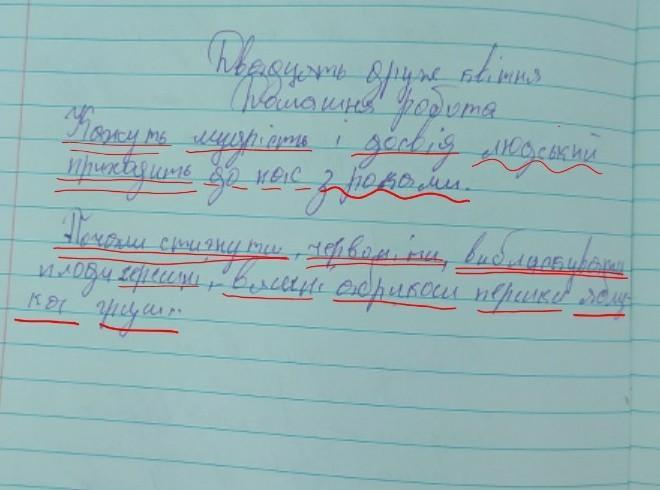 Двадцять друге квітня
Домашня робота
Кажуть мудрість і досвід людський
приходить до нас з родами.
Почали стигнути, червоніти,
плоди черешні, вишні абрикоси персики яблу
ка груш.